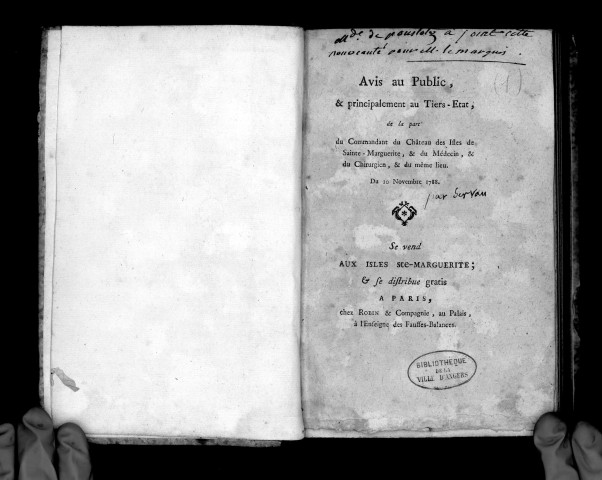 Mde. de a joint cette
nouveauté pour M. le marquis.
(1)
Avis au Public,
& principalement au Tiers-Etat,
de la part
du Commandant du Château des Isles de
Sainte-Marguerite, & du Médecin, &
du Chirurgien, & du même lieu.
Du 10 Novembre 1788.
par Servan
Se vend
AUX ISLES Ste-MARGUERITE;
& se distribue gratis
A PARIS,
chez ROBIN & Compagnie, au Palais,
à l'Enseigne des Fausses-Balances.
BIBLIOTHEQUE
DE LA
VILLE D'ANGERS